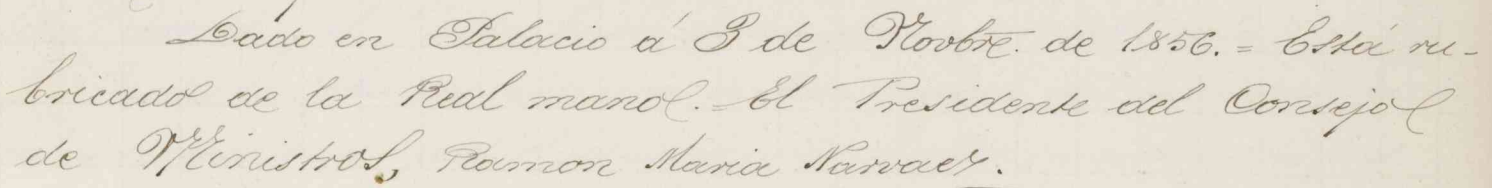 Dado en Palacio á 3 de Novbre. de 1856. = Está ru-
bricado de la Real mano. = El Presidente del Consejo
de Ministros, Ramon Maria Narvaez.